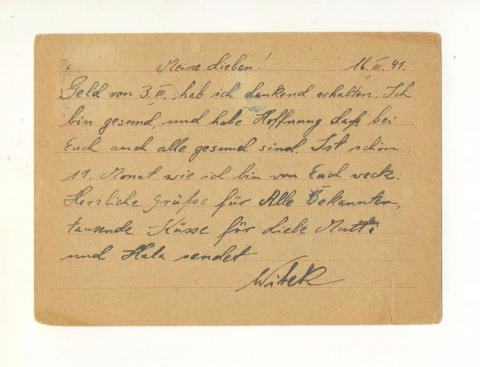 Meine Lieben! 16. III. 41.
Geld von 3. III. hab ich dankend erhalten. Ich
bin gesund und habe Hoffnung daß bei
Euch auch alle gesund sind. Ist schon
11. Monat wie ich bin von Euch weck.
Herzliche Grüsse für Alle Bekannten,
tausende Küsse für liebe Mutti
und Hala sendet
Witek